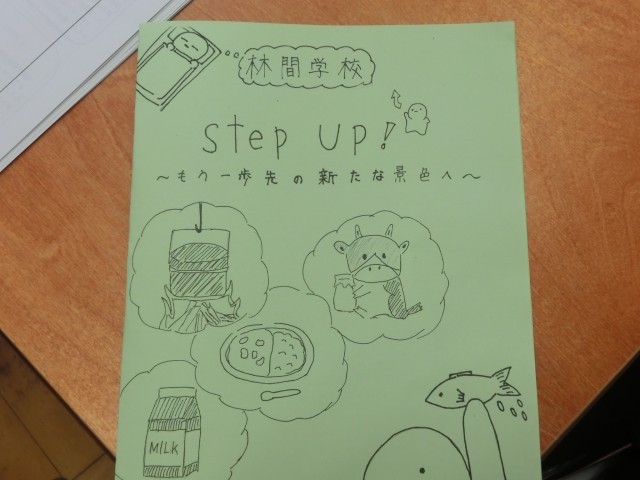 林間学校
step up!
～もう一歩先の新たな景色へ～
MILK